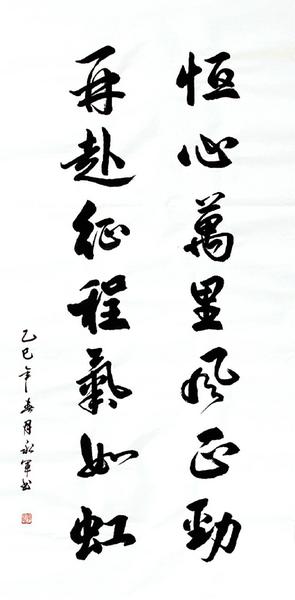 恒心萬里风正勁
再赴征程氣如虹
乙巳年春月永军书